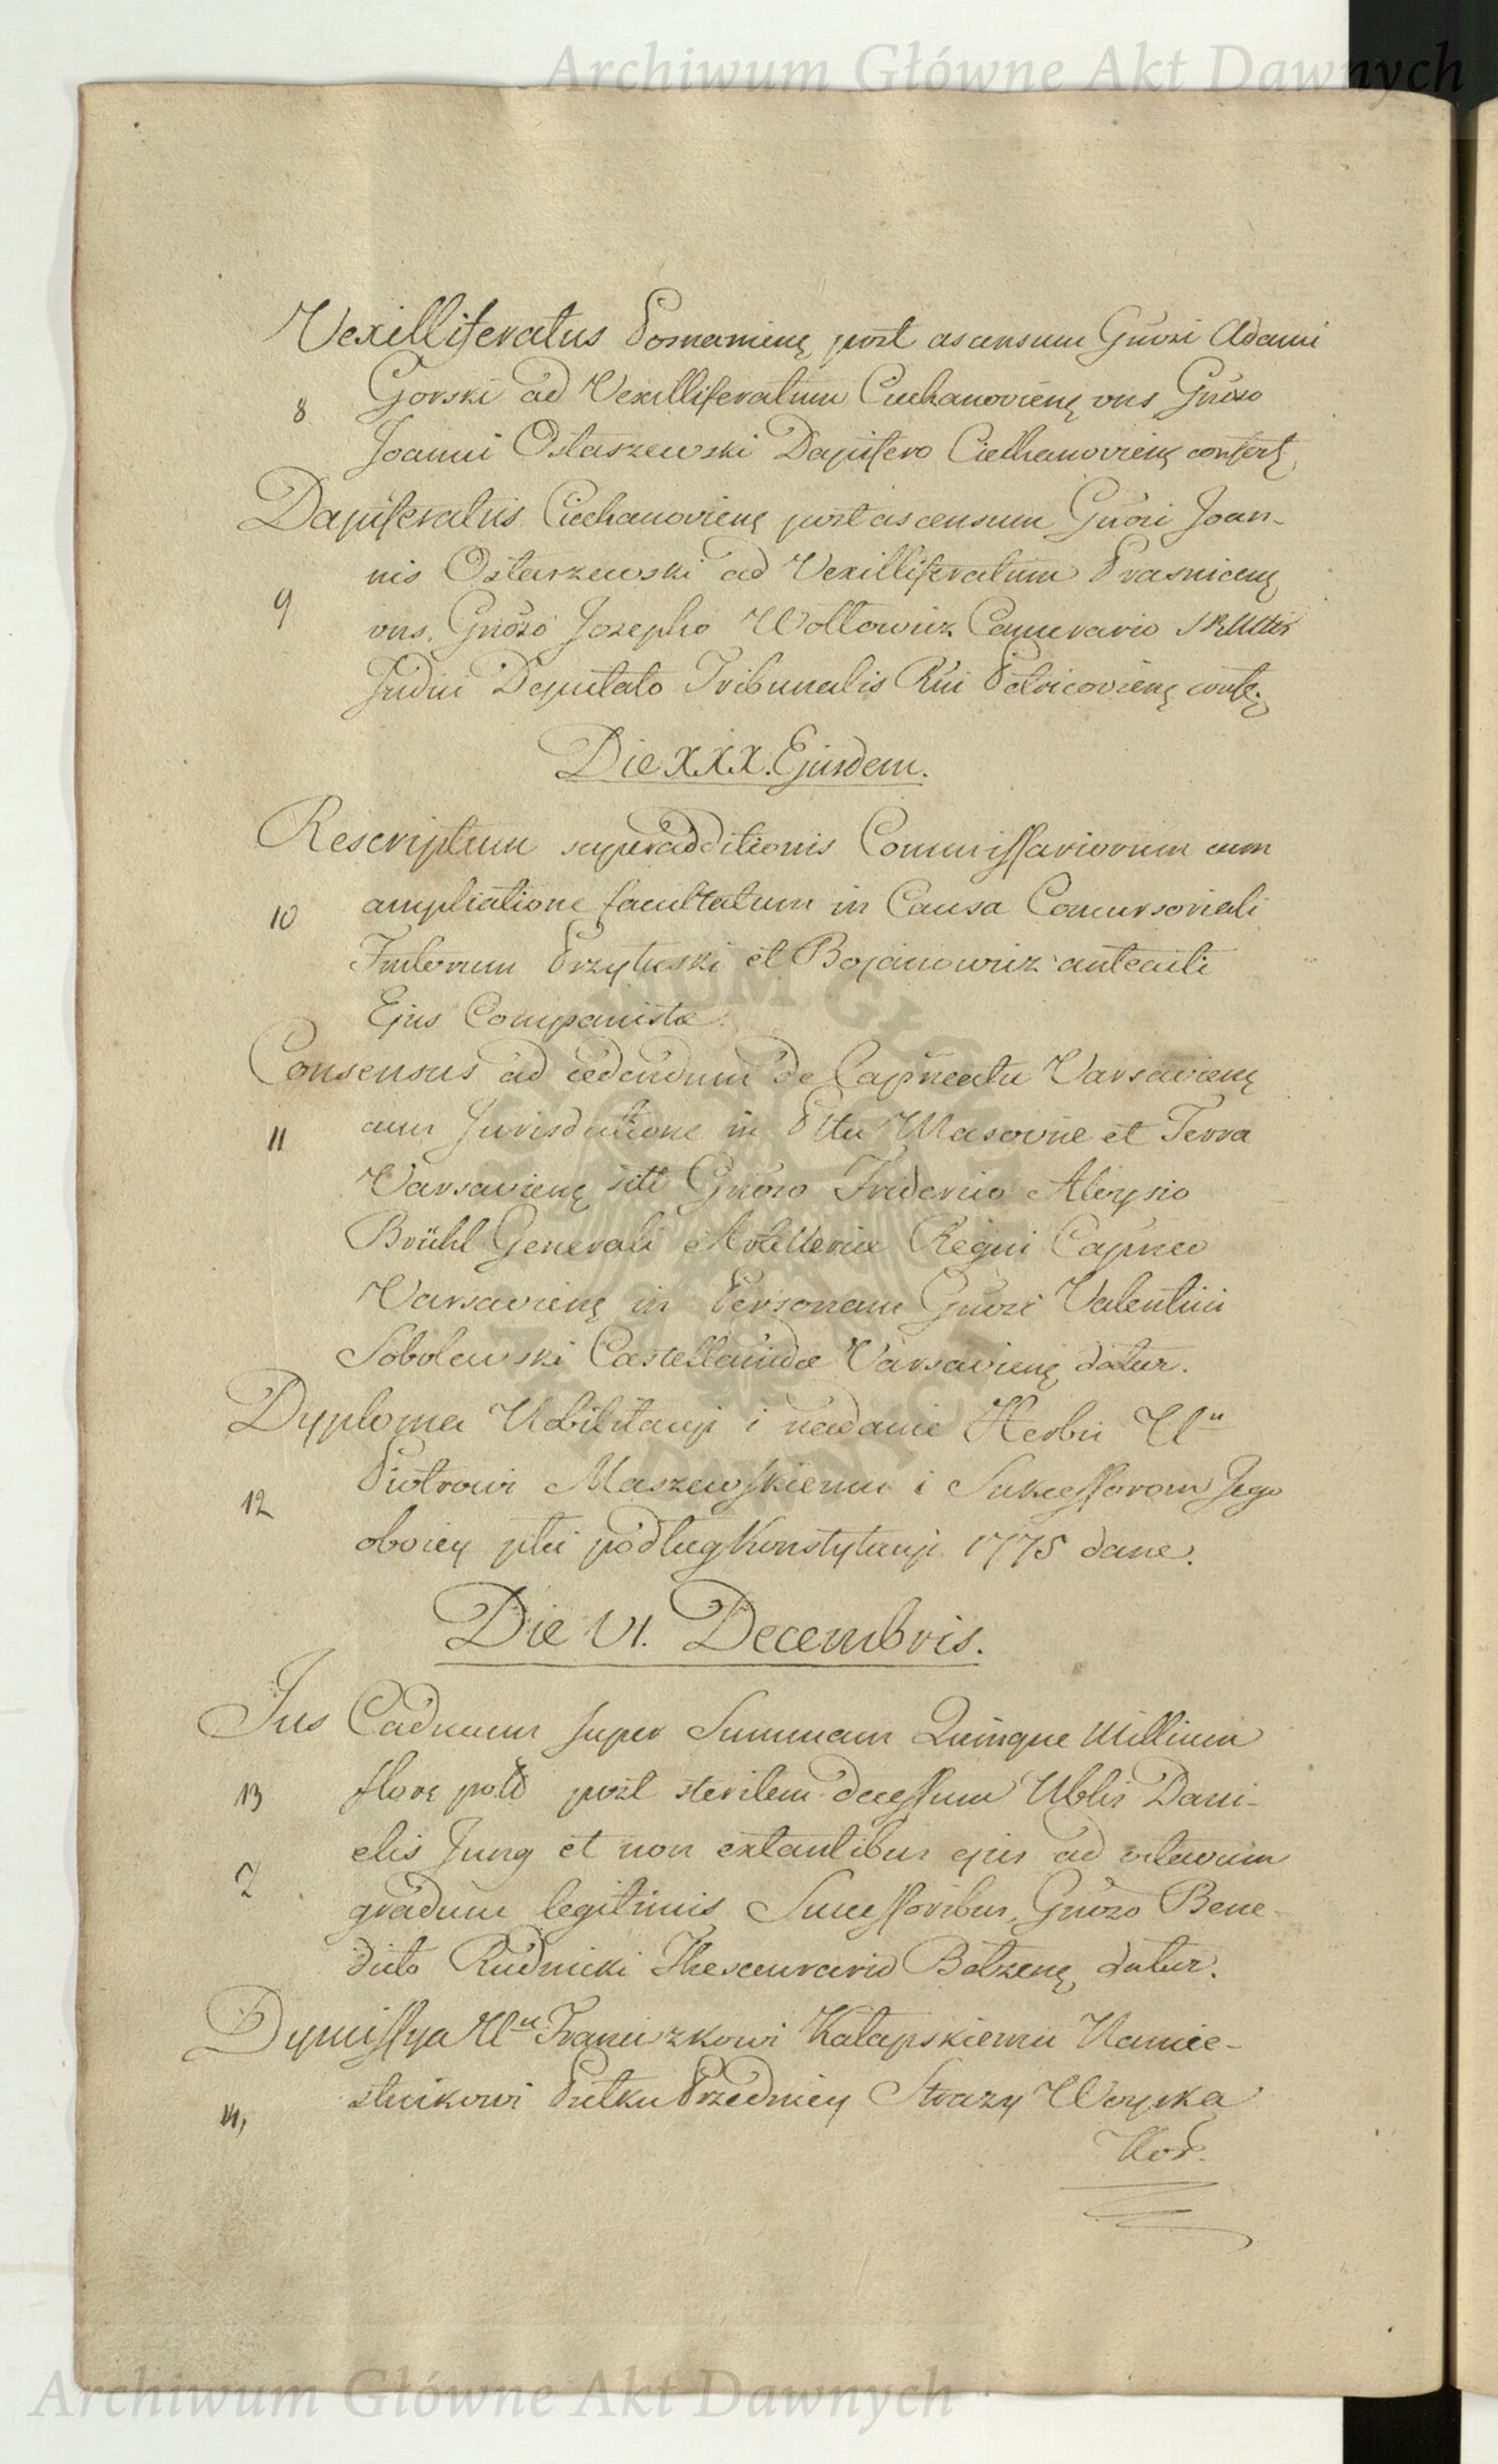 Archiwum Główne Akt Dawnych
Vexilliferatus Posnanienę post ascensum Gnosi Adami
8 Gorski ad Vexilliferatum Ciechanovienę vns Gnoso
Joanni Ostaszewski Dapifero Ciechanovienę confertę
Dapiferatus Ciechanovienę post ascensum Gnosi Joan-
nis Ostaszewski ad Vexilliferatum Prasnicenę
9 vns Gnoso Josepho Wołłowicz Camerario SRMttis
Judici Deputato Tribunalis Rni Petricovienę
Die XXX. Ejusdem.
Rescriptum superadditionis Commissariorum cum
10 ampliatione facultatum in Causa Concursoriali
Przyłuski et Bojanowicz anteacti
Ejus Companistæ.
Consensus ad cedendum de Capneatu Varsavienę
11 cum Jurisdictione in Pttu Masoviæ et Terra
Varsavienę siti Gnoso Friderico Aloysio
Brühl Generali Artilleriæ Regni Capneo
Varsavienę in Personam Gnosi Valentini
Sobolewski Castellanidæ Varsavienę datur.
Dyploma Nobilitacyi i nadanie Herbu Ur
12 Piotrowi Maszewskiemu i Sukcessorom Jego
oboiey płci podług Konstytucyi 1775 dane.
Die VI. Decembris.
Jus Caducum super Summam Quinque Millium
13 florę polo post sterilem decessum Nblis Dani-
elis Jung et non extantibus ejus ad octavum
2 gradum legitimis Successoribus, Gnoso Bene-
dicto Rudnicki Thesaurario Bełzenę datur.
Dymissya Ur Franciszkowi Kałapskiemu Namie-
14, stnikowi Pułku Przedniey Strazy Woyska
Kor.
Archiwum Główne Akt Dawnych